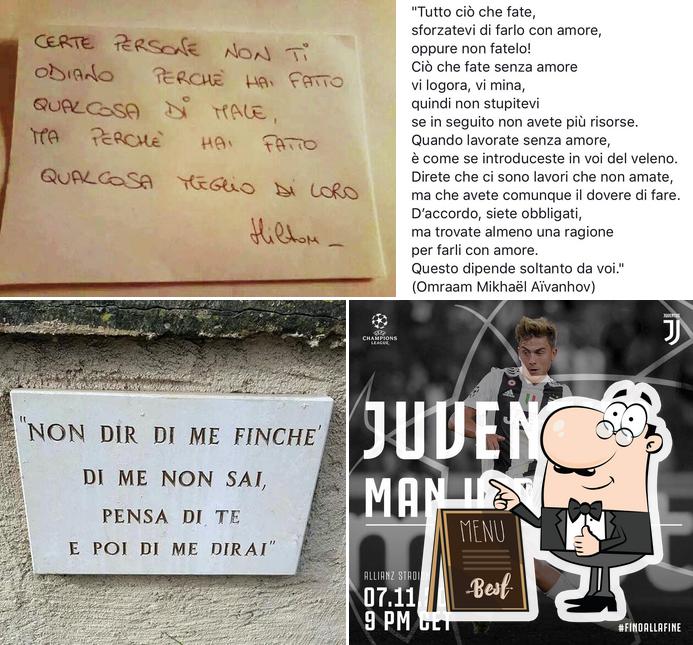 CERTE PERSONE NON TI
ODIANO PERCHÈ HAI FATTO
QUALCOSA DI MALE,
MA PERCHÈ HAI FATTO
QUALCOSA MEGLIO DI LORO
Hilton
"Tutto ciò che fate,
sforzatevi di farlo con amore,
oppure non fatelo!
Ciò che fate senza amore
vi logora, vi mina,
quindi non stupitevi
se in seguito non avete più risorse.
Quando lavorate senza amore,
è come se introduceste in voi del veleno.
Direte che ci sono lavori che non amate,
ma che avete comunque il dovere di fare.
D'accordo, siete obbligati,
ma trovate almeno una ragione
per farli con amore.
Questo dipende soltanto da voi."
(Omraam Mikhaël Aïvanhov)
"NON DIR DI ME FINCHE'
DI ME NON SAI,
PENSA DI TE
E POI DI ME DIRAI"
CHAMPIONS
LEAGUE
JUVENTUS
JUVEN
MAN
ALLIANZ STADIU
07.11
9 PM CET
MENU
Best
#FINOALLAFINE